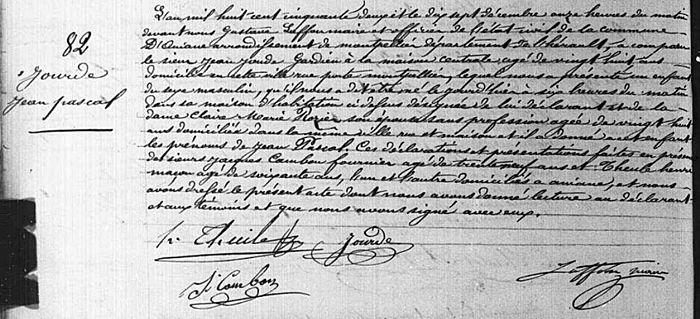 82
Jourde
Jean pascal
L'an mil huit cent cinquante deux et le dix sept décembre onze heures du matin
devant nous Gustave Laffon maire et officier de l'état civil de la commune
D'Aniane arrondissement de montpellier département de l'hérault, a comparu
le sieur Jean Jourde Gardien à la maison centrale agé de vingt huit ans
domicilié en cette ville rue porte montpellier, lequel nous a présenté un enfant
du sexe masculin, qu'il nous a dit être né le jourd'hier à six heures du matin
dans sa maison d'habitation ci dessus désignée de lui déclarant et de la
dame Claire Marie Rozier son épouse sans profession agée de vingt huit
ans domiciliés dans la même ville rue et maison et il a donné au dit enfant
les prénoms de Jean Pascal. Ces déclarations et présentations faites en présence
de sieurs Jacques Cambon fournier agé de trente neuf ans et Theule henri
maçon agé de soixante ans, l'un et l'autre domiciliés a aniane, et nous
avons dressé le présent acte dont nous avons donné lecture au déclarant
et aux témoins et que nous avons signé avec eux.
h. Theule Jourde
Js Cambon Laffon